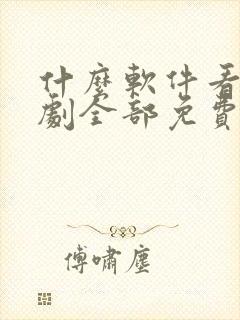 什麼軟件看
劇全部免費
傅嘯塵